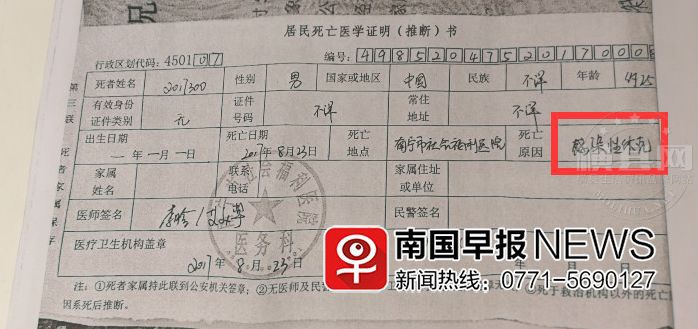 居民死亡医学证明（推断）书
行政区划代码：450107 编号：
死者姓名 2017300 性别 男 国家或地区 中国 民族 不详 年龄
有效身份证件类别 无 证件号码 不详 常住地址 不详
出生日期 一年一月一日 死亡日期 2017年8月23日 死亡地点 南宁市社会福利医院 死亡原因 感染性休克
家属姓名 联系电话 家属住址或单位
医师签名 民警签名
医疗卫生机构盖章
2017年8月23日
会福利医
医务科
南国早报NEWS
新闻热线：0771-5690127
注：①死者家属持此联到公安机关签章；②无医师及民
死于救治机构以外的死亡
因系死后推断。
第三联